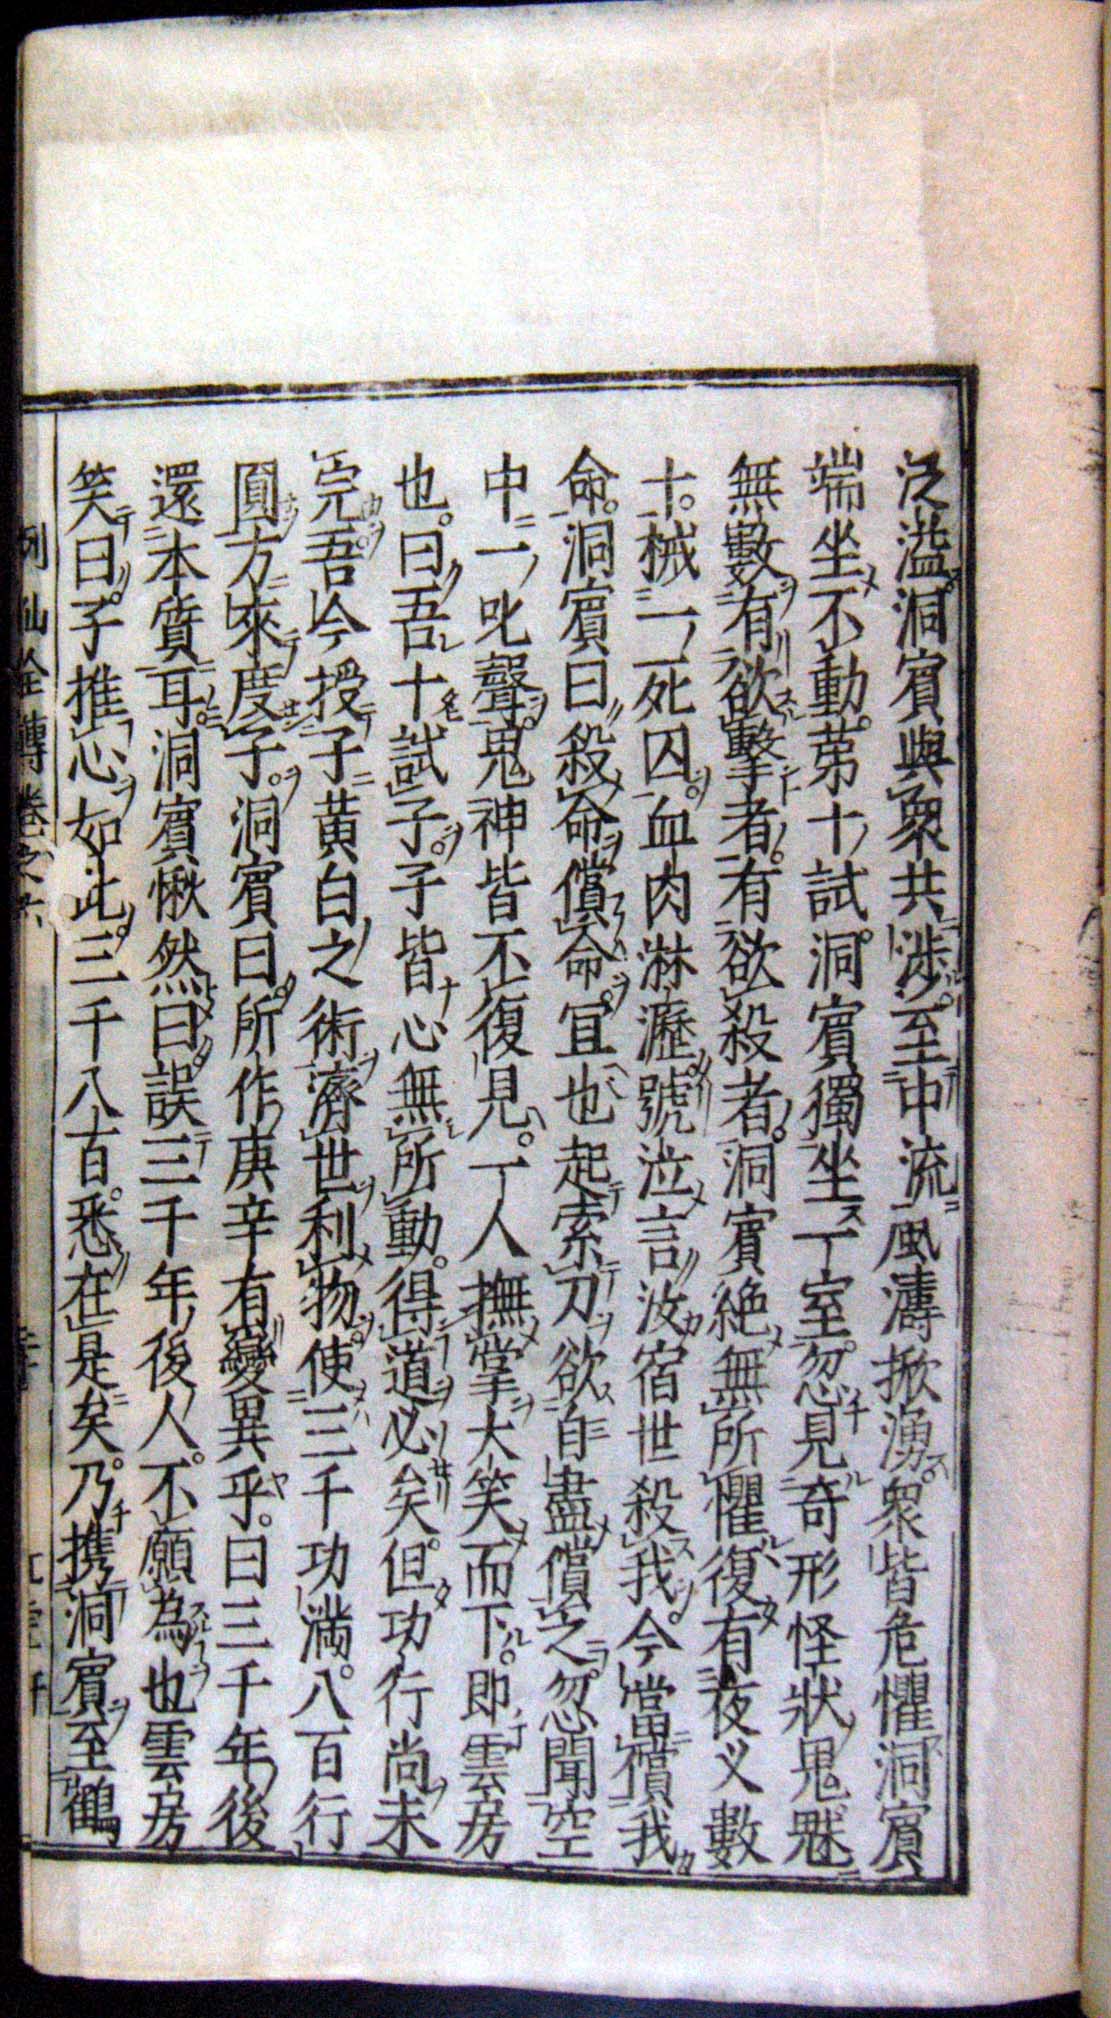 泛溢洞賓與衆共涉至中流風濤掀湧衆皆危懼洞賓
端坐不動第十試洞賓獨坐一室忽見奇形怪狀鬼魅
無數有欲擊者有欲殺者洞賓絶無所懼復有夜叉數
十械一死囚血肉淋瀝號泣言汝宿世殺我今當償我
命洞賓曰殺命償命宜也起索刀欲自盡償之忽聞空
中一叱聲鬼神皆不復見一人撫掌大笑而下即雲房
也曰吾十試子子皆心無所動得道必矣但功行尚未
完吾今授子黄白之術濟世利物使三千功滿八百行
圓方來度子洞賓曰所作庚辛有變異乎曰三千年後
還本質耳洞賓愀然曰誤三千年後人不願為也雲房
笑曰子推心如此三千八百悉在是矣乃携洞賓至鶴
列仙全傳卷之六